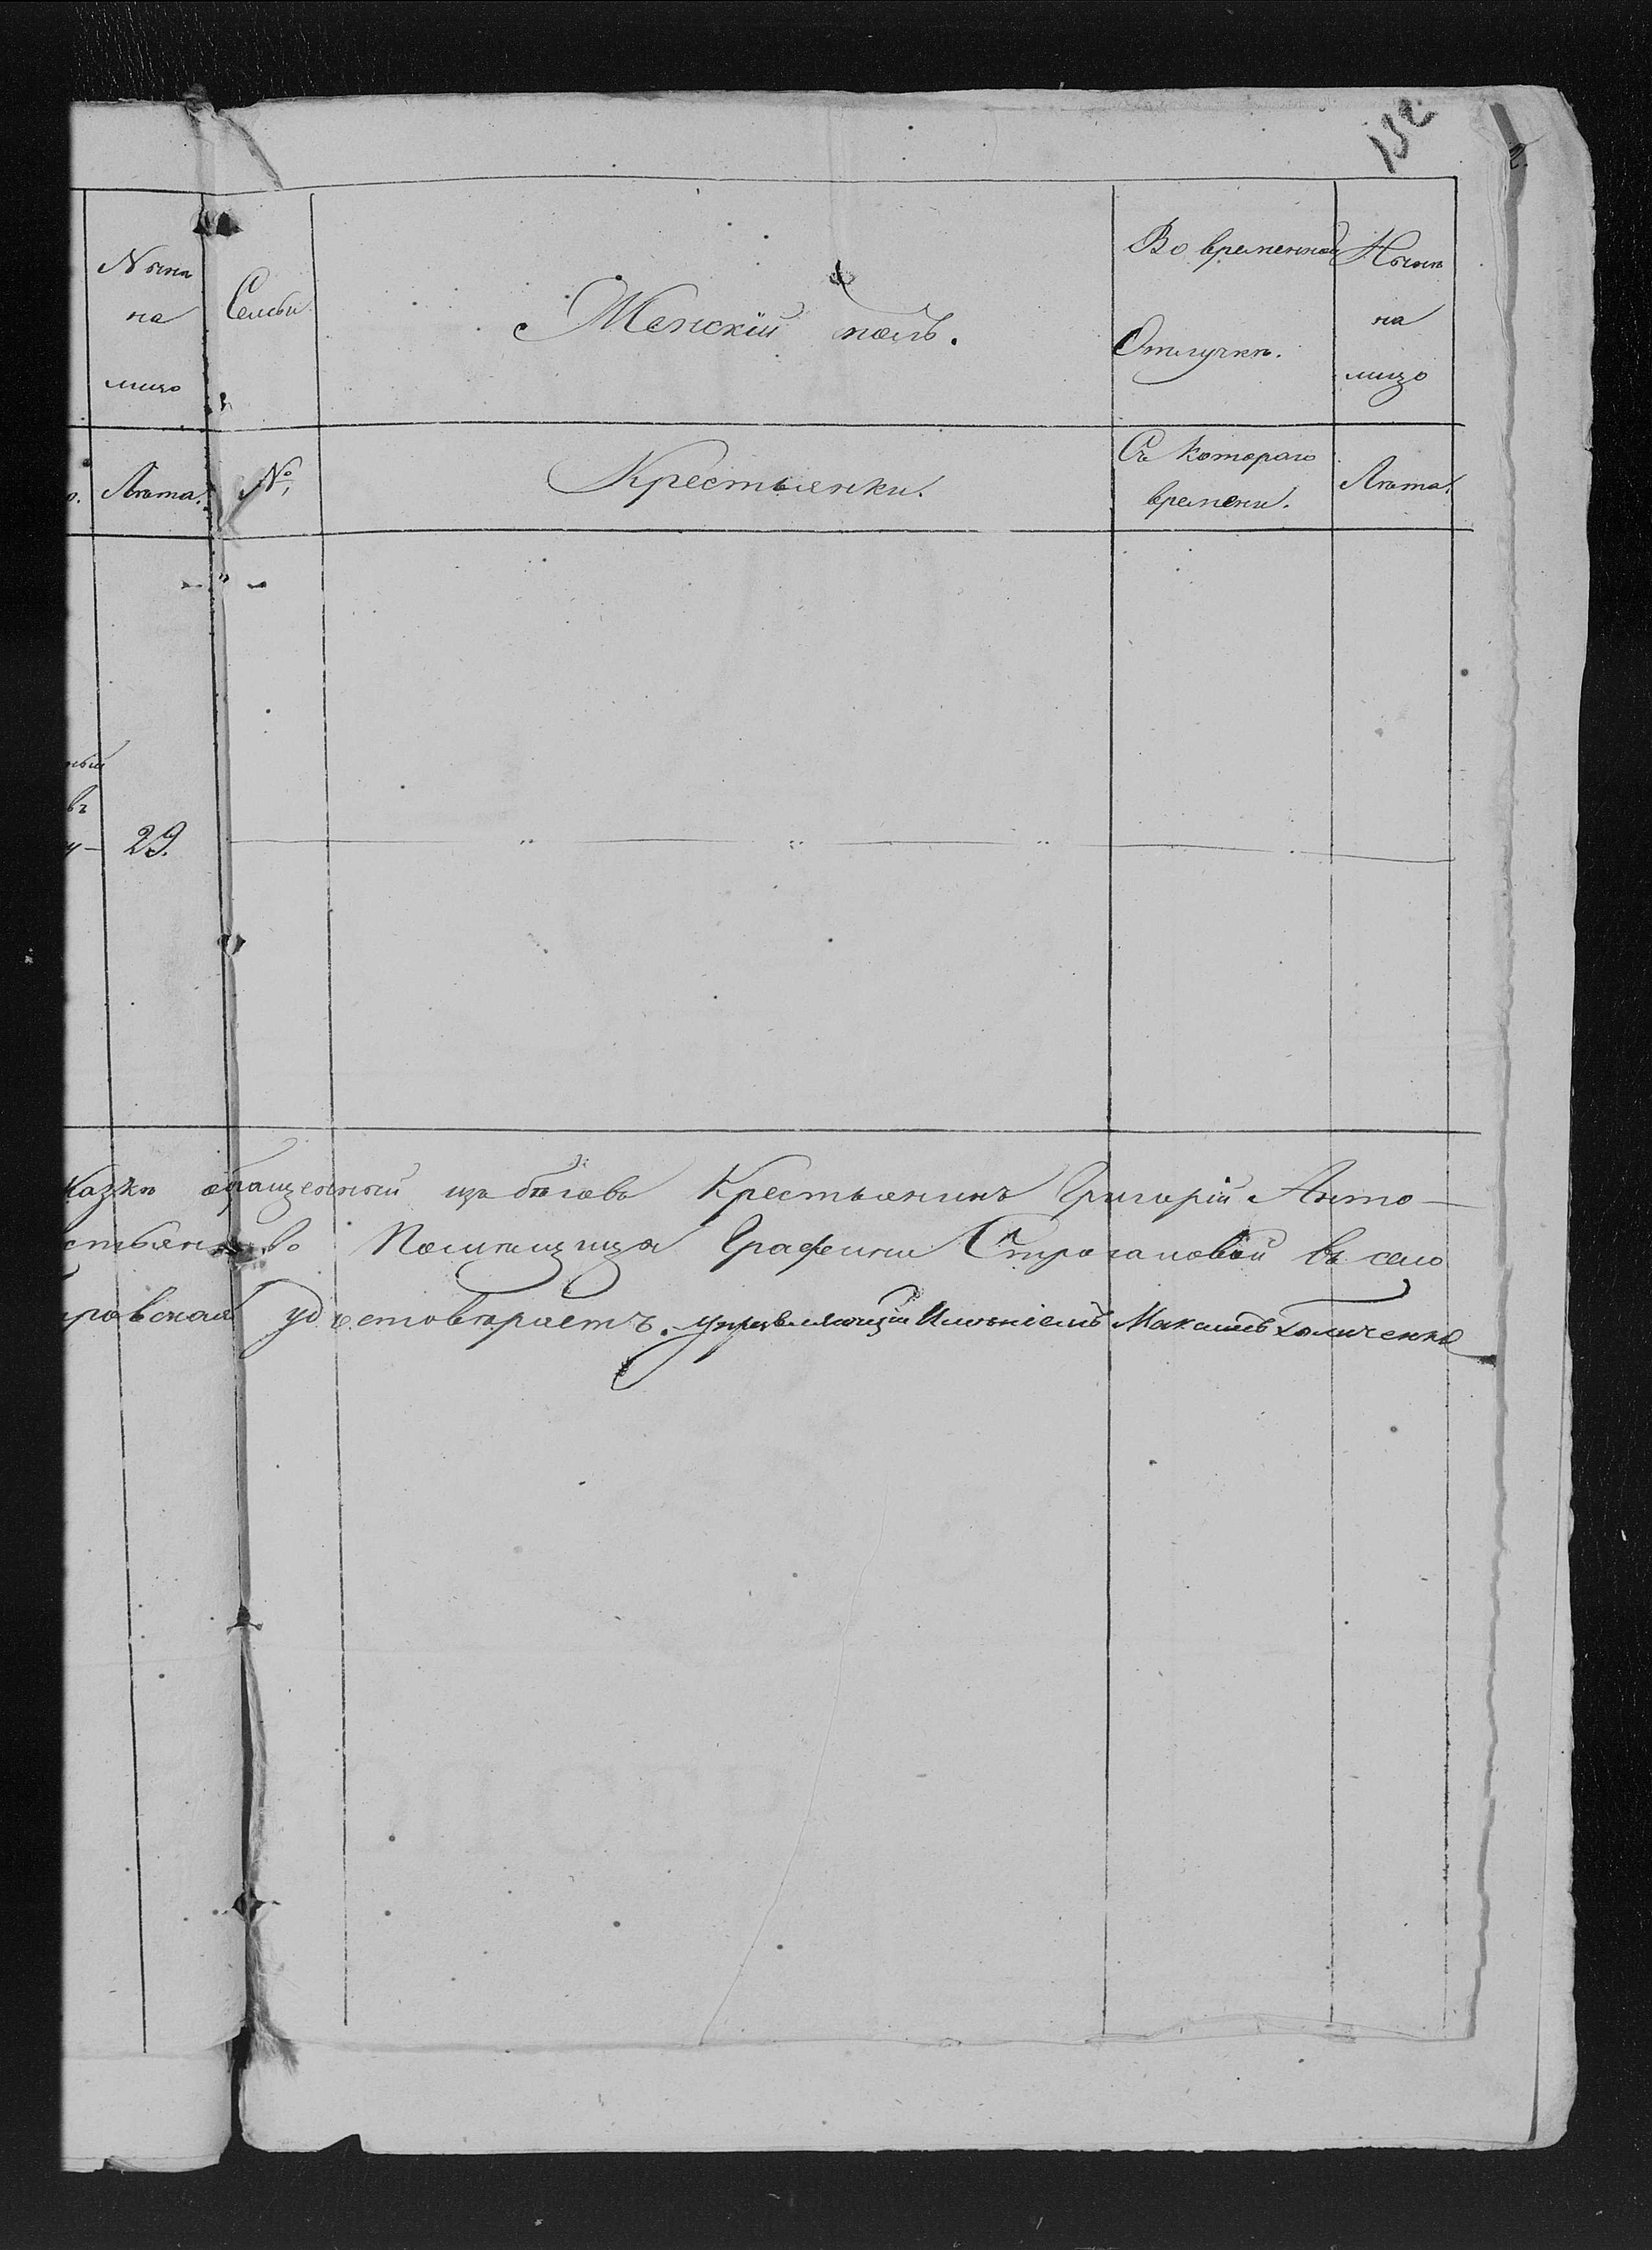 152
Нынѣ
на
лицо
Семьи
Женскій полъ.
Во временной
Отлучкѣ.
Нынѣ
на
лицо
Лѣта.
№
Крестьянки.
Съ котораго
времени.
Лѣта.
ный
въ
29.
казкѣ обращенный изъ бѣговъ Крестьянинъ Григорій Анто-
Помѣщица Графини Строгановой въ село
ровская удостовѣряетъ. управляющій Имѣніемъ Максимъ